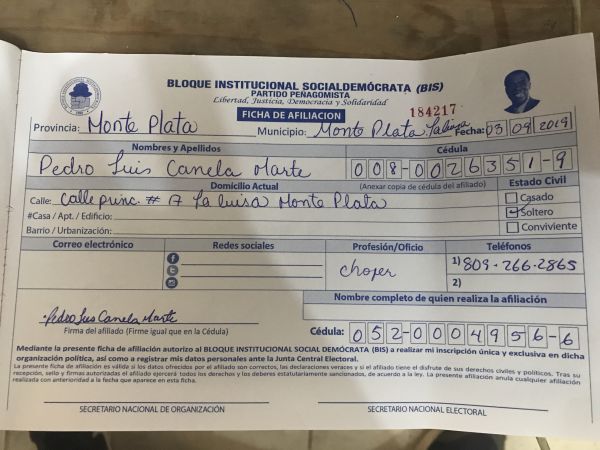 BLOQUE INSTITUCIONAL SOCIALDEMÓCRATA (BIS)
PARTIDO PEÑAGOMISTA
Libertad, Justicia, Democracia y Solidaridad
FICHA DE AFILIACION 184217
Provincia: Monte Plata Municipio: Monte Plata Fecha: 03 09 2019
Nombres y Apellidos Cédula
Pedro Luis Canela Marte 008-0026351-9
Domicilio Actual (Anexar copia de cédula del afiliado) Estado Civil
Calle: Calle princ. # 17 La luisa Monte Plata Casado
#Casa / Apt. / Edificio: Soltero
Barrio / Urbanización: Conviviente
Correo electrónico Redes sociales Profesión/Oficio Teléfonos
chofer 1) 809-266-2865
2)
Nombre completo de quien realiza la afiliación
Pedro Luis Canela Marte
Firma del afiliado (Firme igual que en la Cédula) Cédula: 052-0004956-6
Mediante la presente ficha de afiliación autorizo al BLOQUE INSTITUCIONAL SOCIAL DEMÓCRATA (BIS) a realizar mi inscripción única y exclusiva en dicha
organización política, así como a registrar mis datos personales ante la Junta Central Electoral.
La presente ficha de afiliación es válida si los datos ofrecidos por el afiliado son correctos, las declaraciones veraces y si el afiliado tiene el disfrute de sus derechos civiles y políticos. Tras su
recepción, sello y firmas autorizadas el afiliado ejercerá todos los derechos y los deberes estatutariamente sancionados, de acuerdo a la ley. La presente afiliación anula cualquier afiliación
realizada con anterioridad a la fecha que aparece en esta ficha.
SECRETARIO NACIONAL DE ORGANIZACIÓN SECRETARIO NACIONAL ELECTORAL